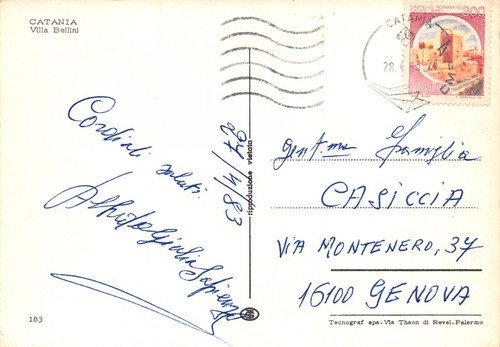 CATANIA
Villa Bellini
Cordiali saluti.
27/4/83
riproduzione vietata
CATANIA
300
ITALIA
Gent.ma Famiglia
CASICCIA
VIA MONTENERO, 37
16100 GENOVA
183
Tecnograf spa-Via Thaon di Revel-Palermo